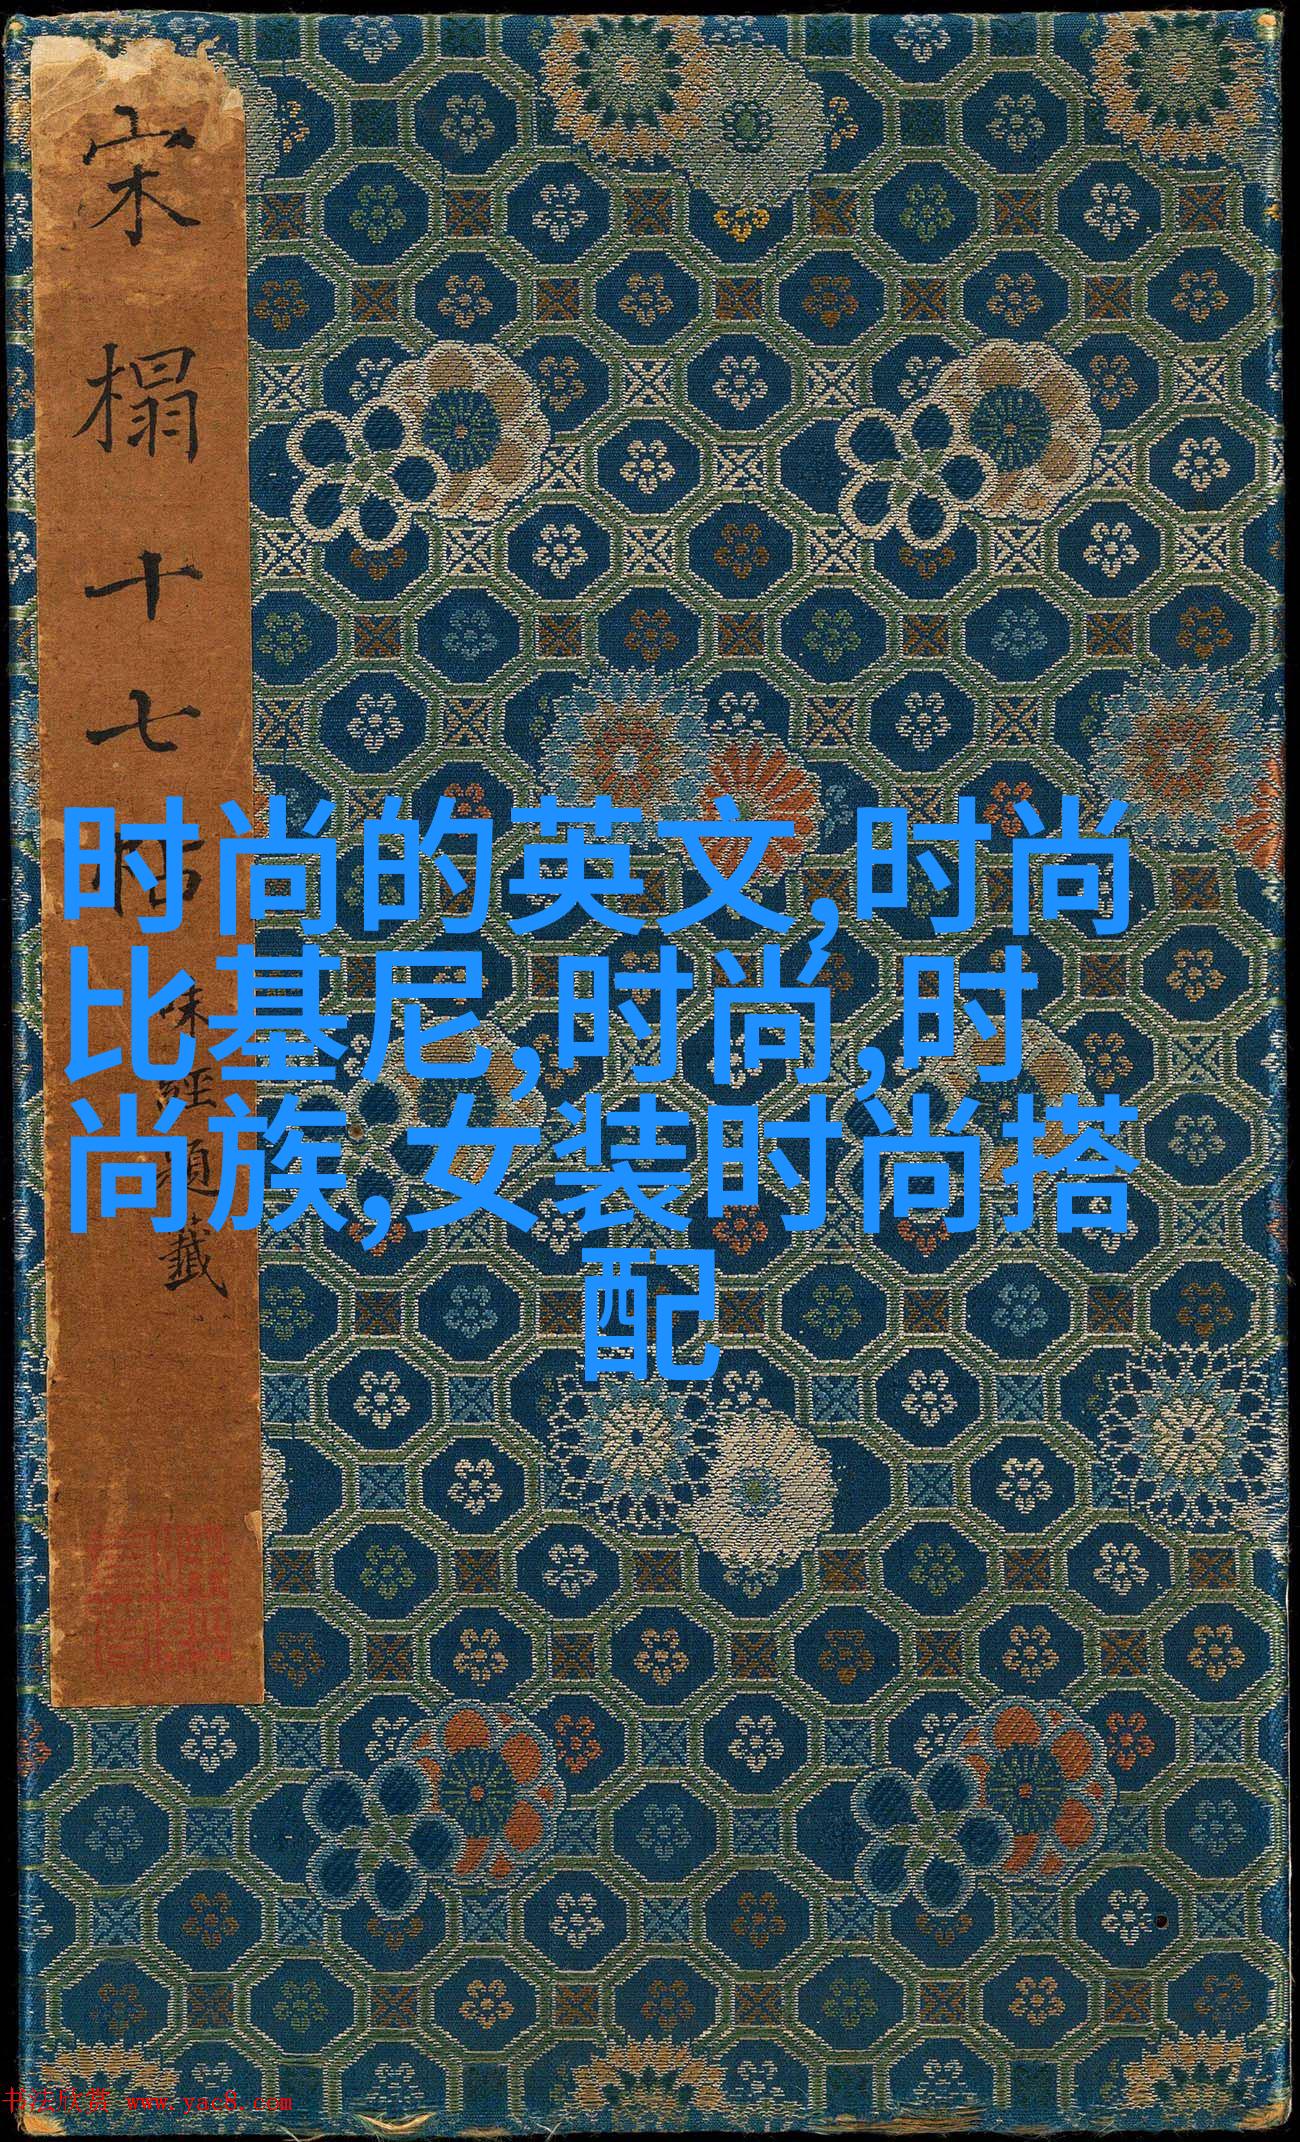 宋榻十七帖
味經題籤
时尚的英文,时尚
比基尼,时尚,时
尚族,女装时尚搭
配
书法欣赏 www.yac8.com